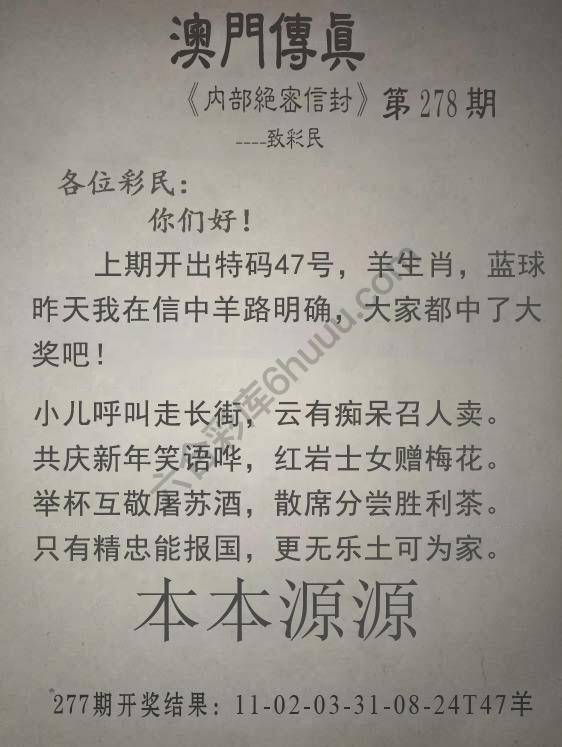 澳門傳真
《内部絕密信封》第278期
----致彩民
各位彩民：
你们好！
上期开出特码47号，羊生肖，蓝球
昨天我在信中羊路明确，大家都中了大
奖吧！
小儿呼叫走长街，云有痴呆召人卖。
共庆新年笑语哗，红岩士女赠梅花。
举杯互敬屠苏酒，散席分尝胜利茶。
只有精忠能报国，更无乐土可为家。
本本源源
277期开奖结果：11-02-03-31-08-24T47羊
六合彩库6huuu.com